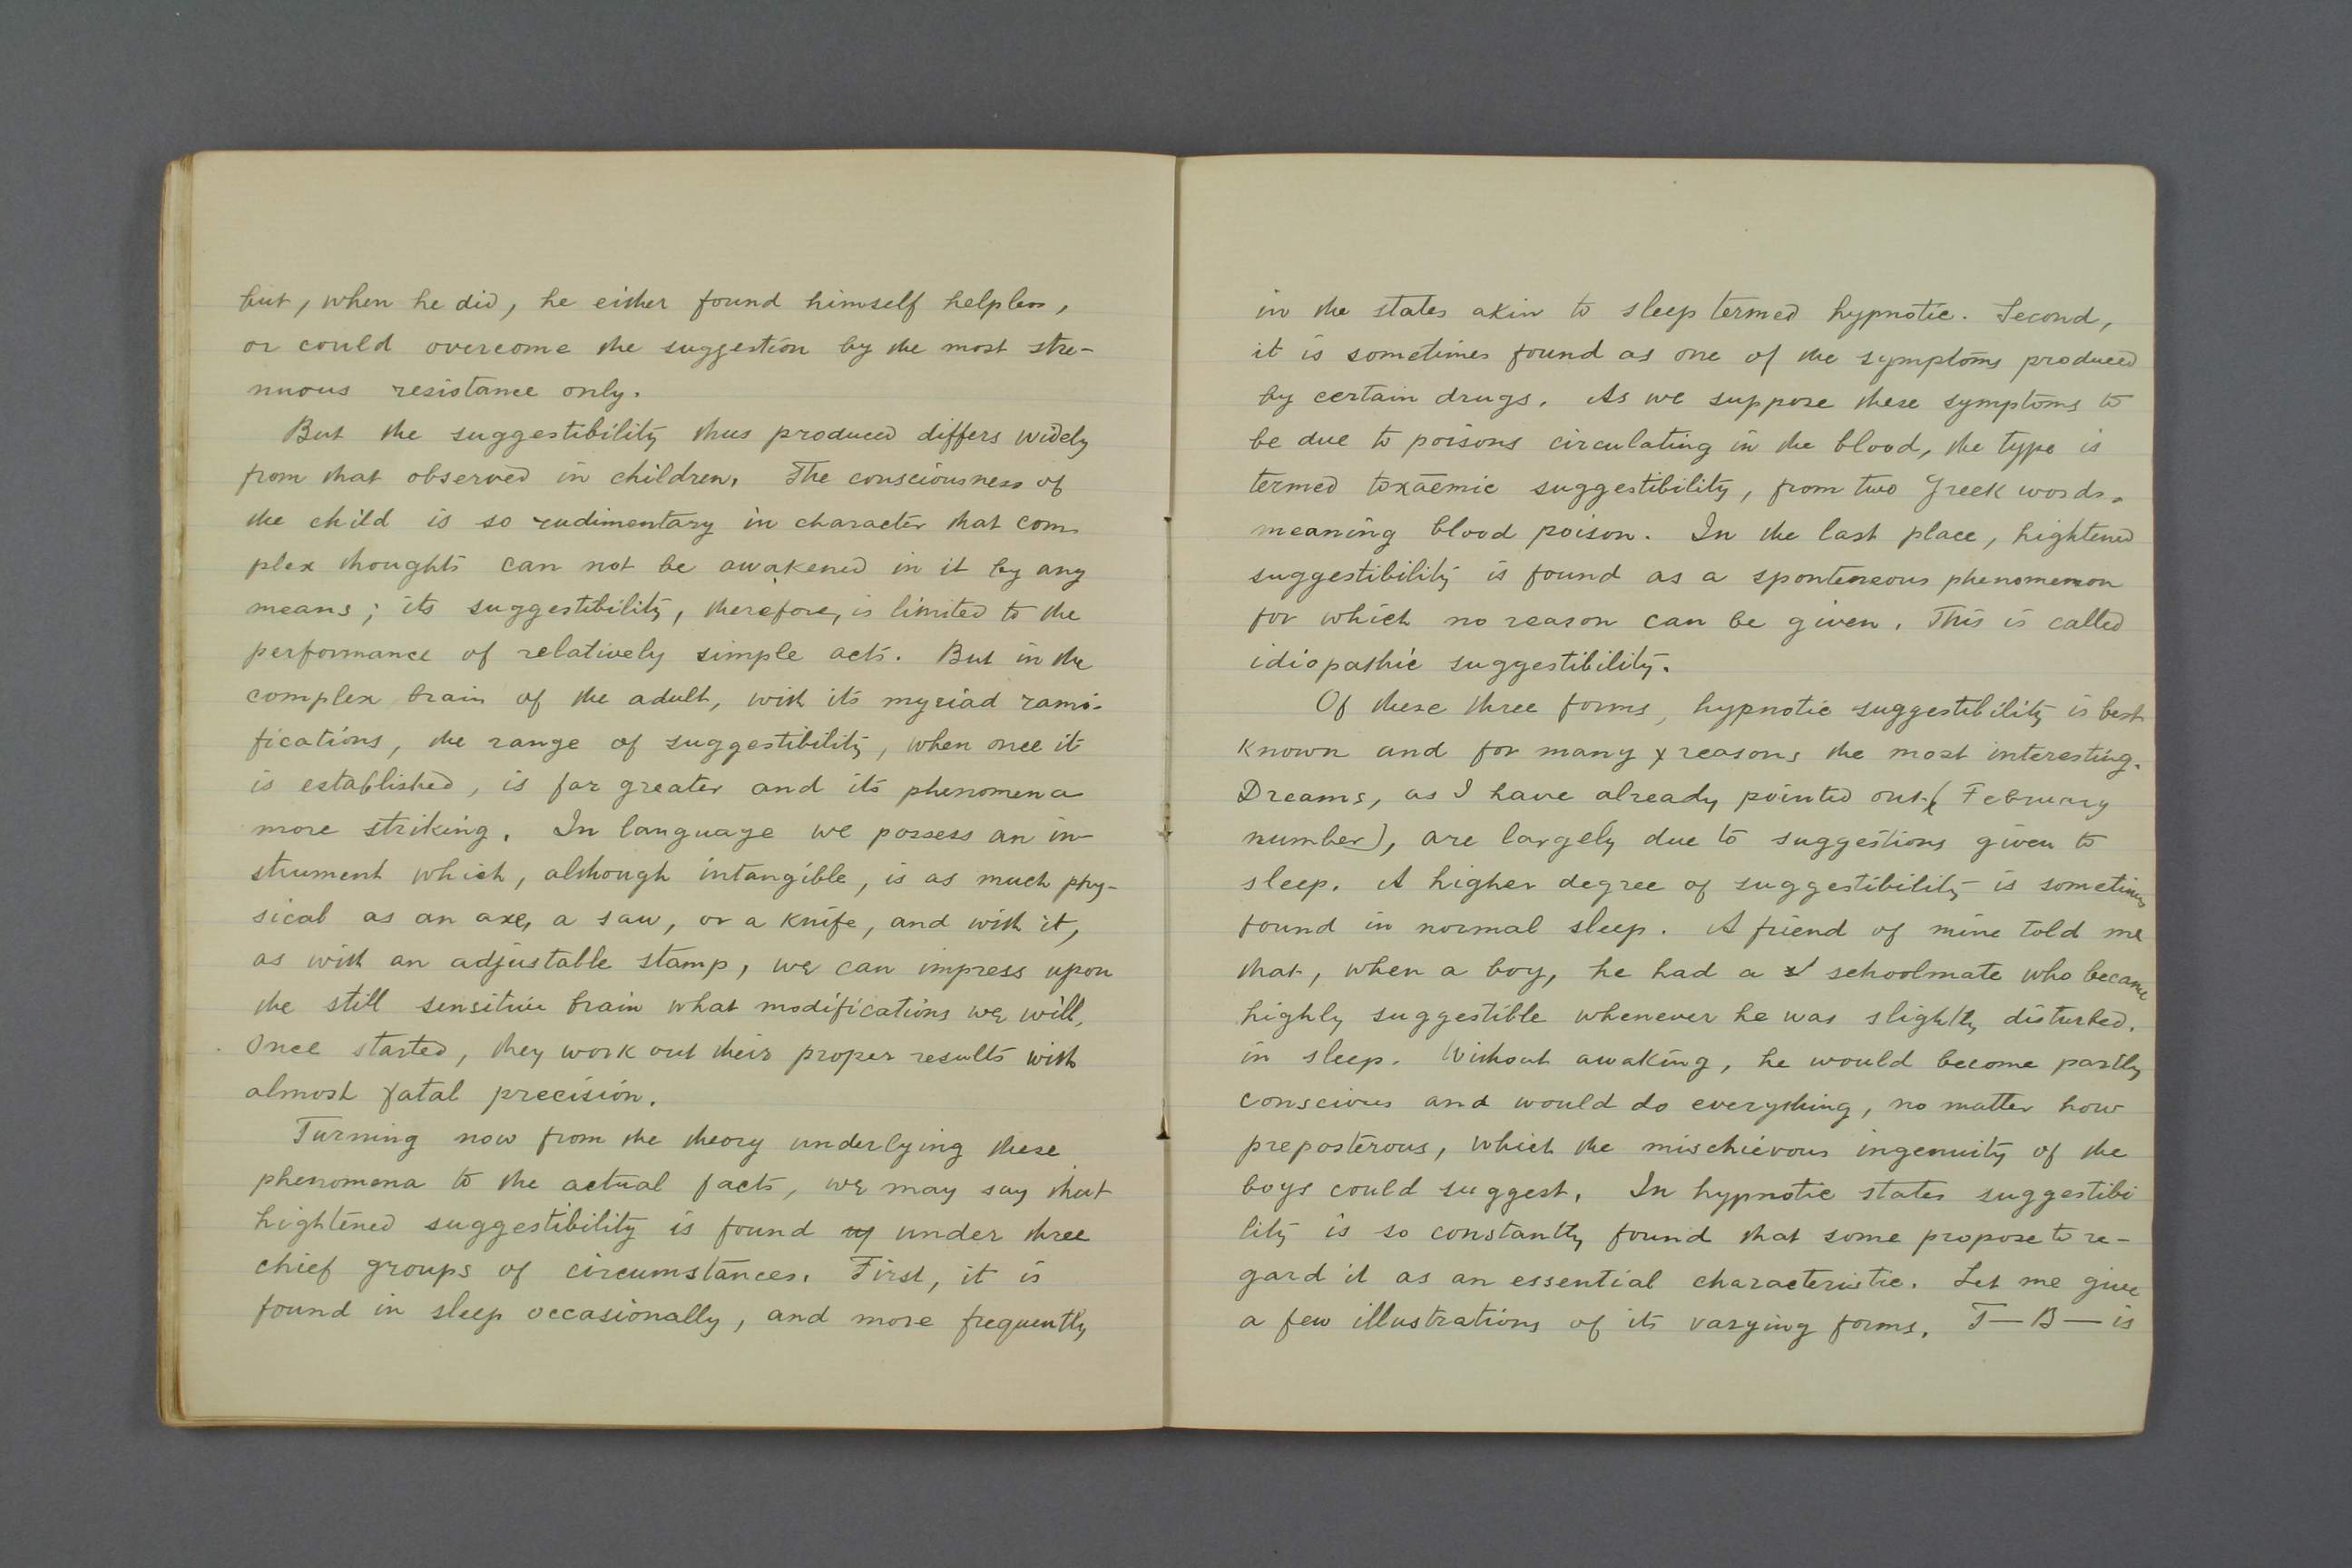 but, when he did, he either found himself helpless,
or could overcome the suggestion by the most stre-
nuous resistance only.
But the suggestibility thus produced differs widely
from that observed in children. The consciousness of
the child is so rudimentary in character that com-
plex thoughts can not be awakened in it by any
means; its suggestibility, therefore, is limited to the
performance of relatively simple acts. But in the
complex brain of the adult, with its myriad rami-
fications, the range of suggestibility, when once it
is established, is far greater and its phenomena
more striking. In language we possess an in-
strument which, although intangible, is as much phy-
sical as an axe, a saw, or a knife, and with it,
as with an adjustable stamp, we can impress upon
the still sensitive brain what modifications we will.
Once started, they work out their proper results with
almost fatal precision.
Turning now from the theory underlying these
phenomena to the actual facts, we may say that
hightened suggestibility is found under three
chief groups of circumstances. First, it is
found in sleep occasionally, and more frequently
in the states akin to sleep termed hypnotic. Second,
it is sometimes found as one of the symptoms produced
by certain drugs. As we suppose these symptoms to
be due to poisons circulating in the blood, the type is
termed toxaemic suggestibility, from two Greek words
meaning blood poison. In the last place, hightened
suggestibility is found as a sponteneous phenomenon
for which no reason can be given. This is called
idiopathic suggestibility.
Of these three forms, hypnotic suggestibility is best
known and for many reasons the most interesting.
Dreams, as I have already pointed out (February
number), are largely due to suggestions given to
sleep. A higher degree of suggestibility is sometimes
found in normal sleep. A friend of mine told me
that, when a boy, he had a schoolmate who became
highly suggestible whenever he was slightly disturbed
in sleep. Without awaking, he would become partly
conscious and would do everything, no matter how
preposterous, which the mischievous ingenuity of the
boys could suggest. In hypnotic states suggestibi
lity is so constantly found that some propose to re-
gard it as an essential characteristic. Let me give
a few illustrations of its varying forms. T—B— is